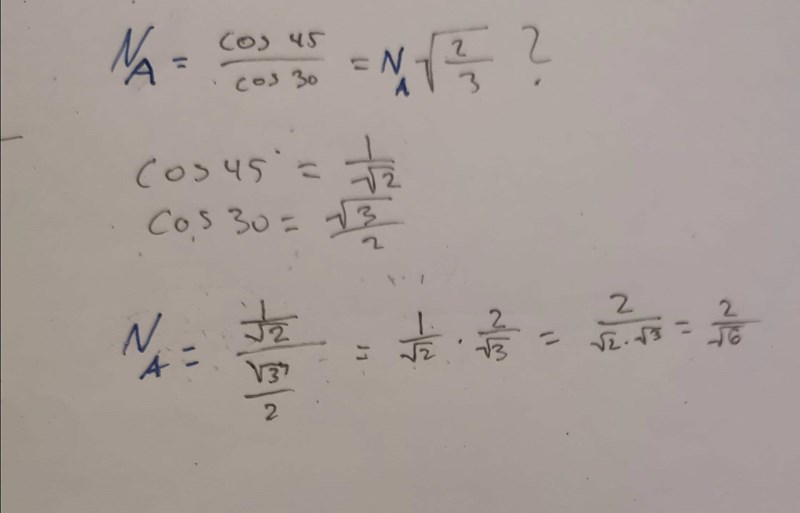 N_A = cos 45 / cos 30 = N_A √(2/3) ?
cos 45° = 1/√2
cos 30 = √3/2
N_A = (1/√2)/(√3/2) = 1/√2 · 2/√3 = 2/(√2·√3) = 2/√6